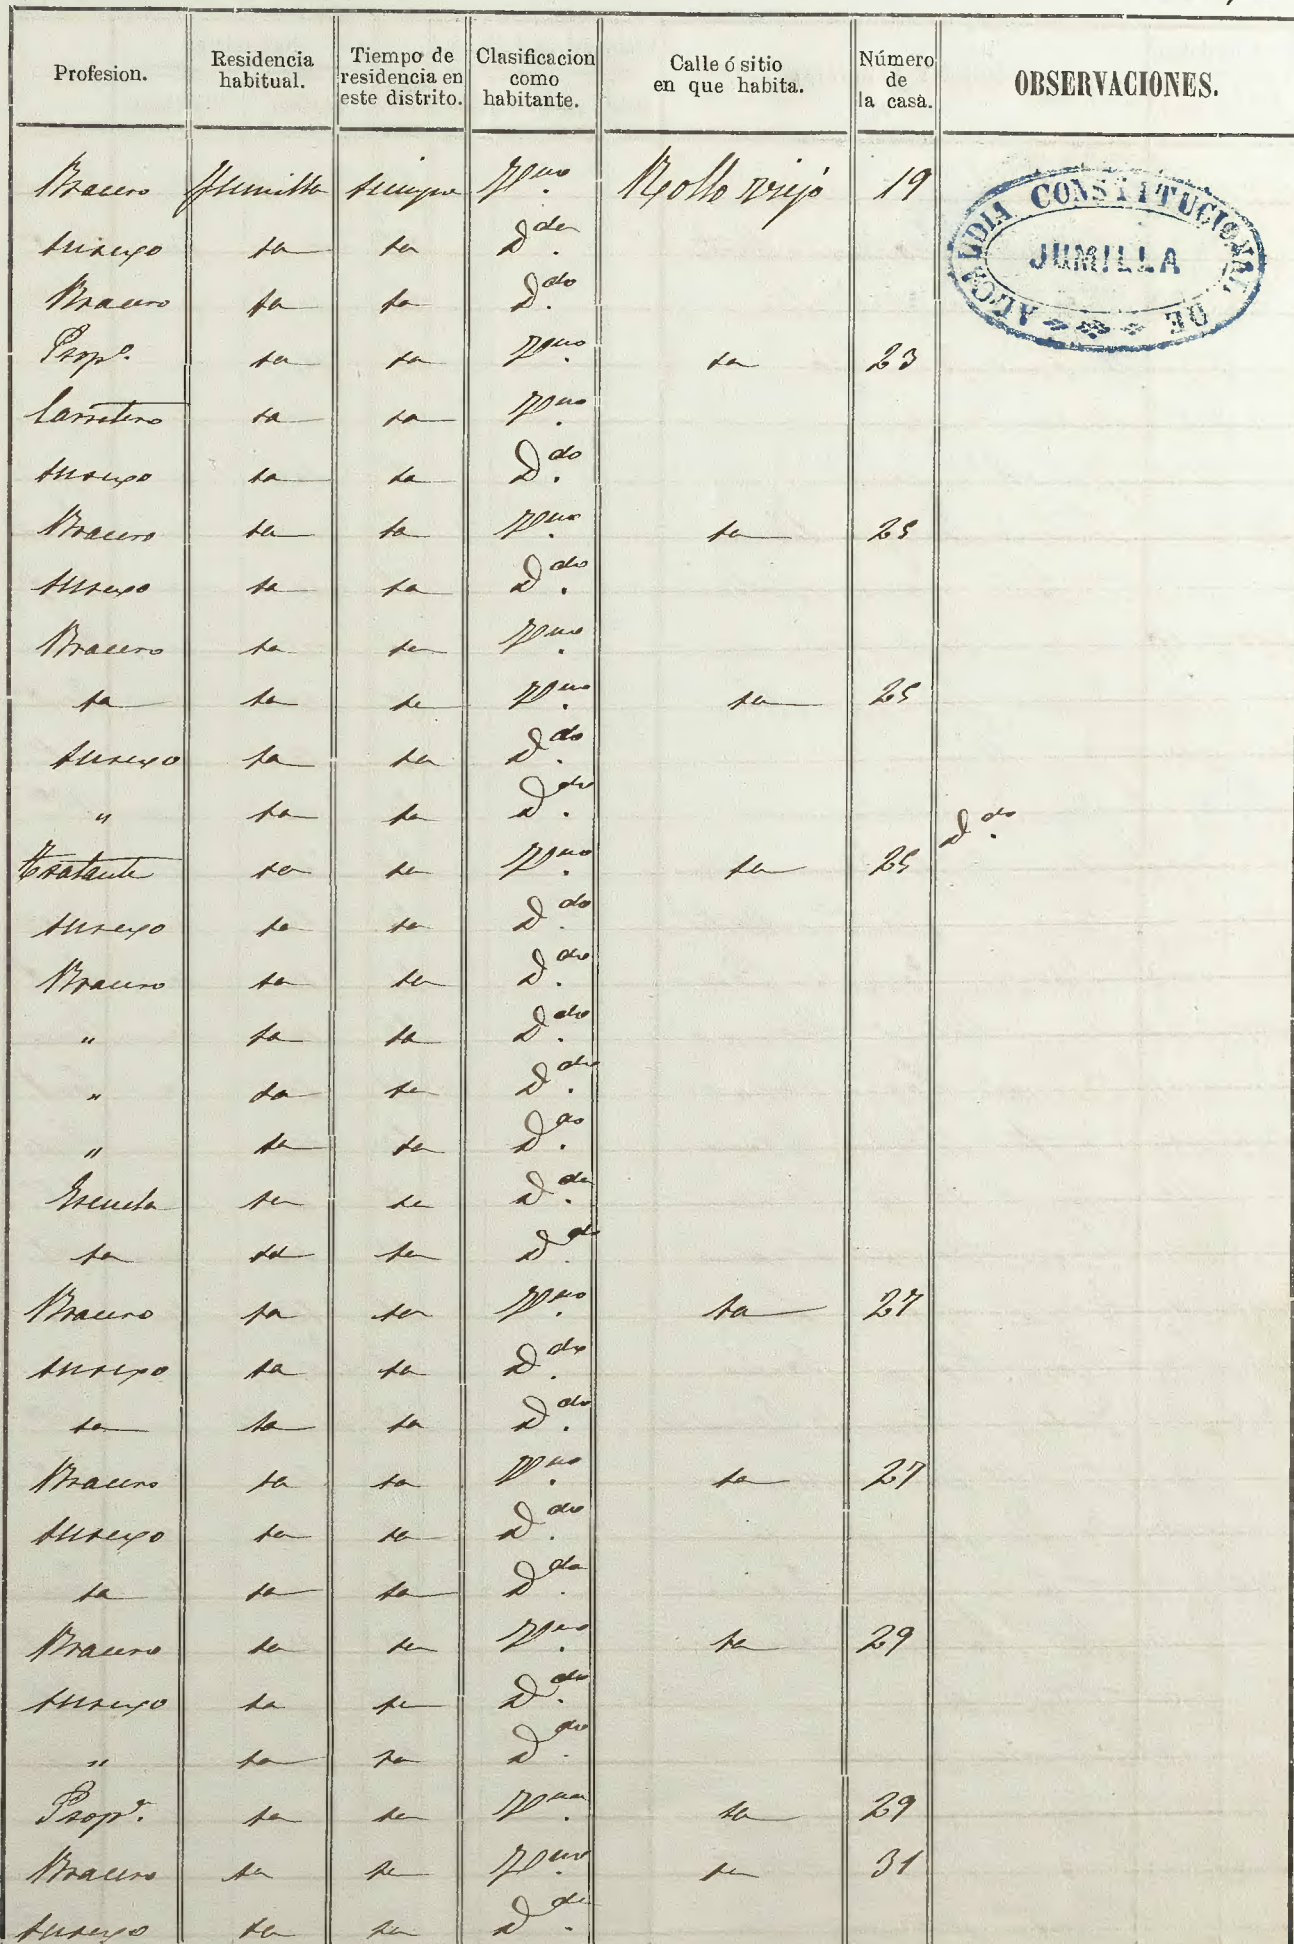 Profesion. Residencia habitual. Tiempo de residencia en este distrito. Clasificacion como habitante. Calle ó sitio en que habita. Número de la casa. OBSERVACIONES.
ALCALDIA CONSTITUCIONAL DE
JUMILLA
Bracero Jumilla siempre Vno. Rollo viejo 19
su sexo id id Ddo.
Bracero id id Ddo.
Propo. id id Vno. id 23
Carretero id id Vno.
su sexo id id Ddo.
Bracero id id Vno. id 25
su sexo id id Ddo.
Bracero id id Vno.
id id id Vno. id 25
su sexo id id Ddo.
" id id Ddo. Ddo.
Tratante id id Vno. id 25
su sexo id id Ddo.
Bracero id id Ddo.
" id id Ddo.
" id id Ddo.
" id id Ddo.
Escuela id id Ddo.
id id id Ddo.
Bracero id id Vno. id 27
su sexo id id Ddo.
id id id Ddo.
Bracero id id Vno. id 27
su sexo id id Ddo.
id id id Dda.
Bracero id id Vno. id 29
su sexo id id Ddo.
" id id Ddo.
Propa. id id Vna. id 29
Bracero id id Vno. id 31
su sexo id id Dda.